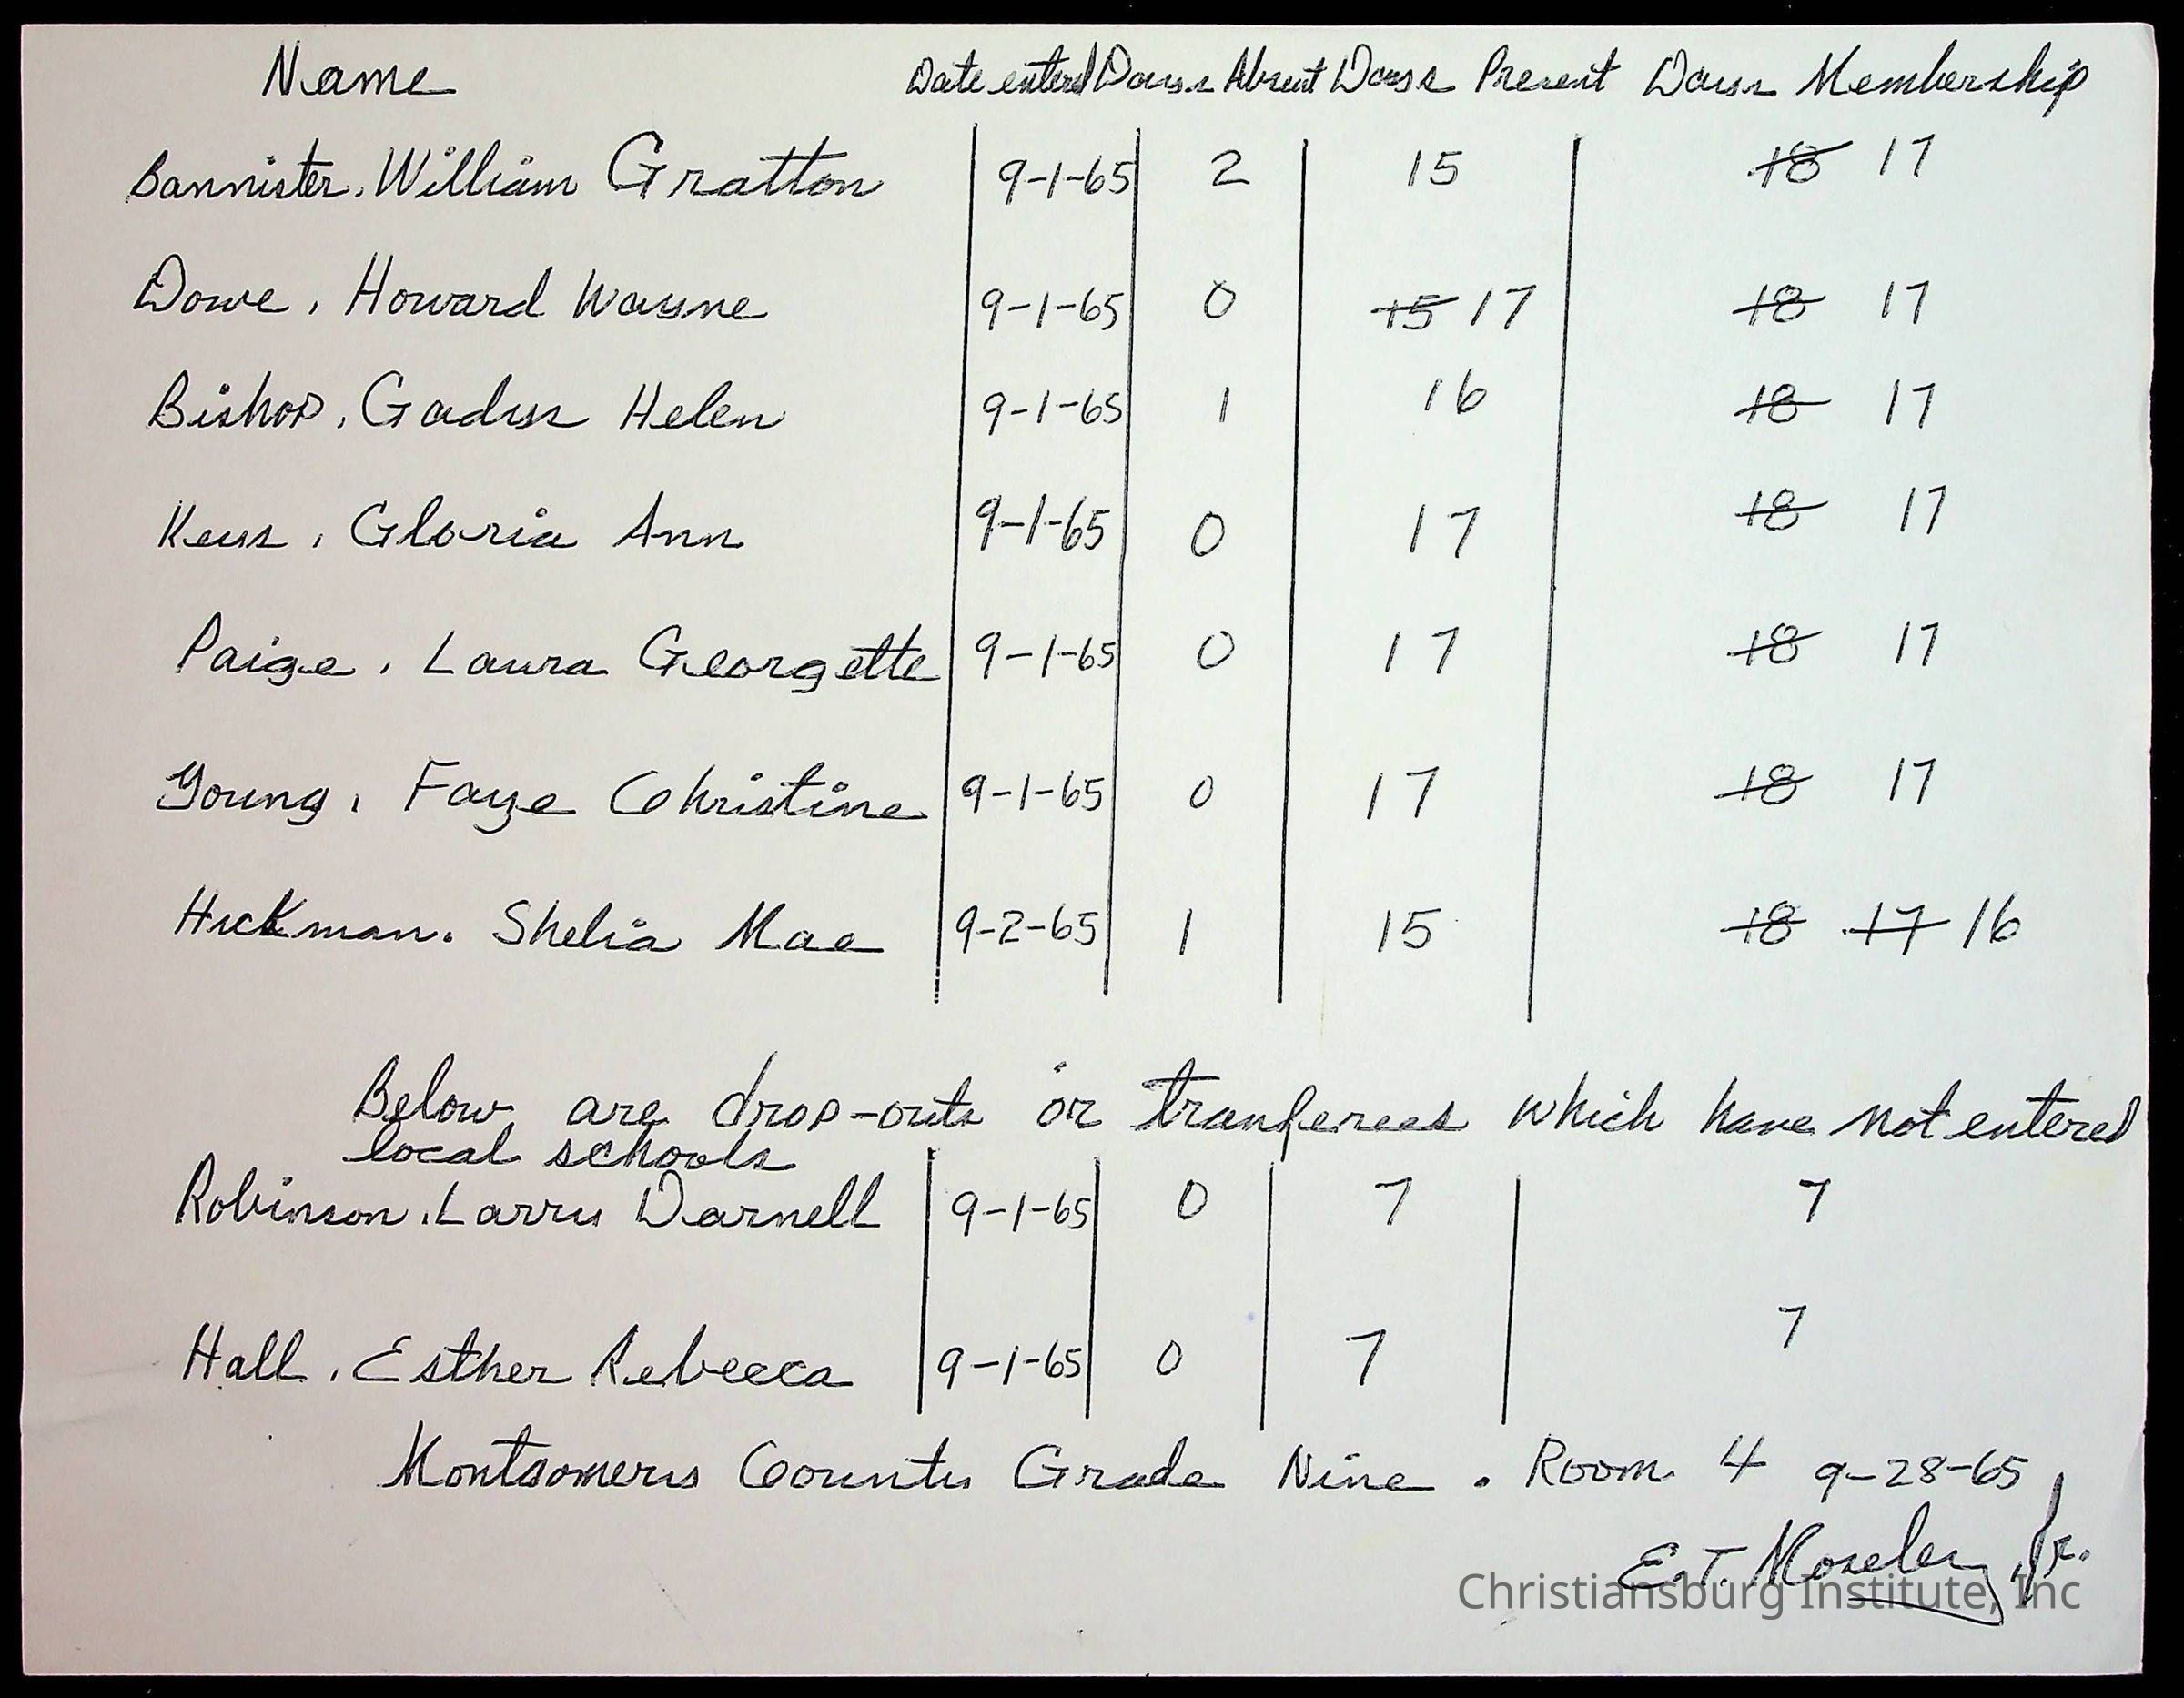 Name Date entered Days Absent Days Present Days Membership
Bannister, William Gratton 9-1-65 2 15 18 17
Dowe, Howard Wayne 9-1-65 0 15 17 18 17
Bishop, Gadys Helen 9-1-65 1 16 18 17
Keys, Gloria Ann 9-1-65 0 17 18 17
Paige, Laura Georgette 9-1-65 0 17 18 17
Young, Faye Christine 9-1-65 0 17 18 17
Hickman, Shelia Mae 9-2-65 1 15 18 17 16
Below are drop-outs or tranferees which have not entered
local schools
Robinson, Larry Darnell 9-1-65 0 7 7
Hall, Esther Rebecca 9-1-65 0 7 7
Montgomery County Grade Nine. Room 4 9-28-65
E.T. Moseley, Jr.
Christiansburg Institute, Inc